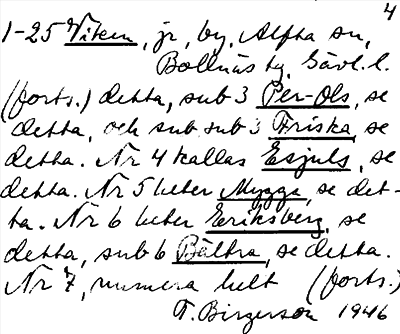 4
1-25 Viken, jr, by, Alfta sn,
Bollnäs tg, Gävl. l.
(forts.) detta, sub 3 Per-Ols, se
detta, och sub sub 3 Friska, se
detta. Nr 4 kallas Esjuls, se
detta. Nr 5 heter Mygga, se det-
ta. Nr 6 heter Eriksberg, se
detta, sub 6 Bältra, se detta.
Nr 7, numera helt (forts.)
T. Birgerson 1946